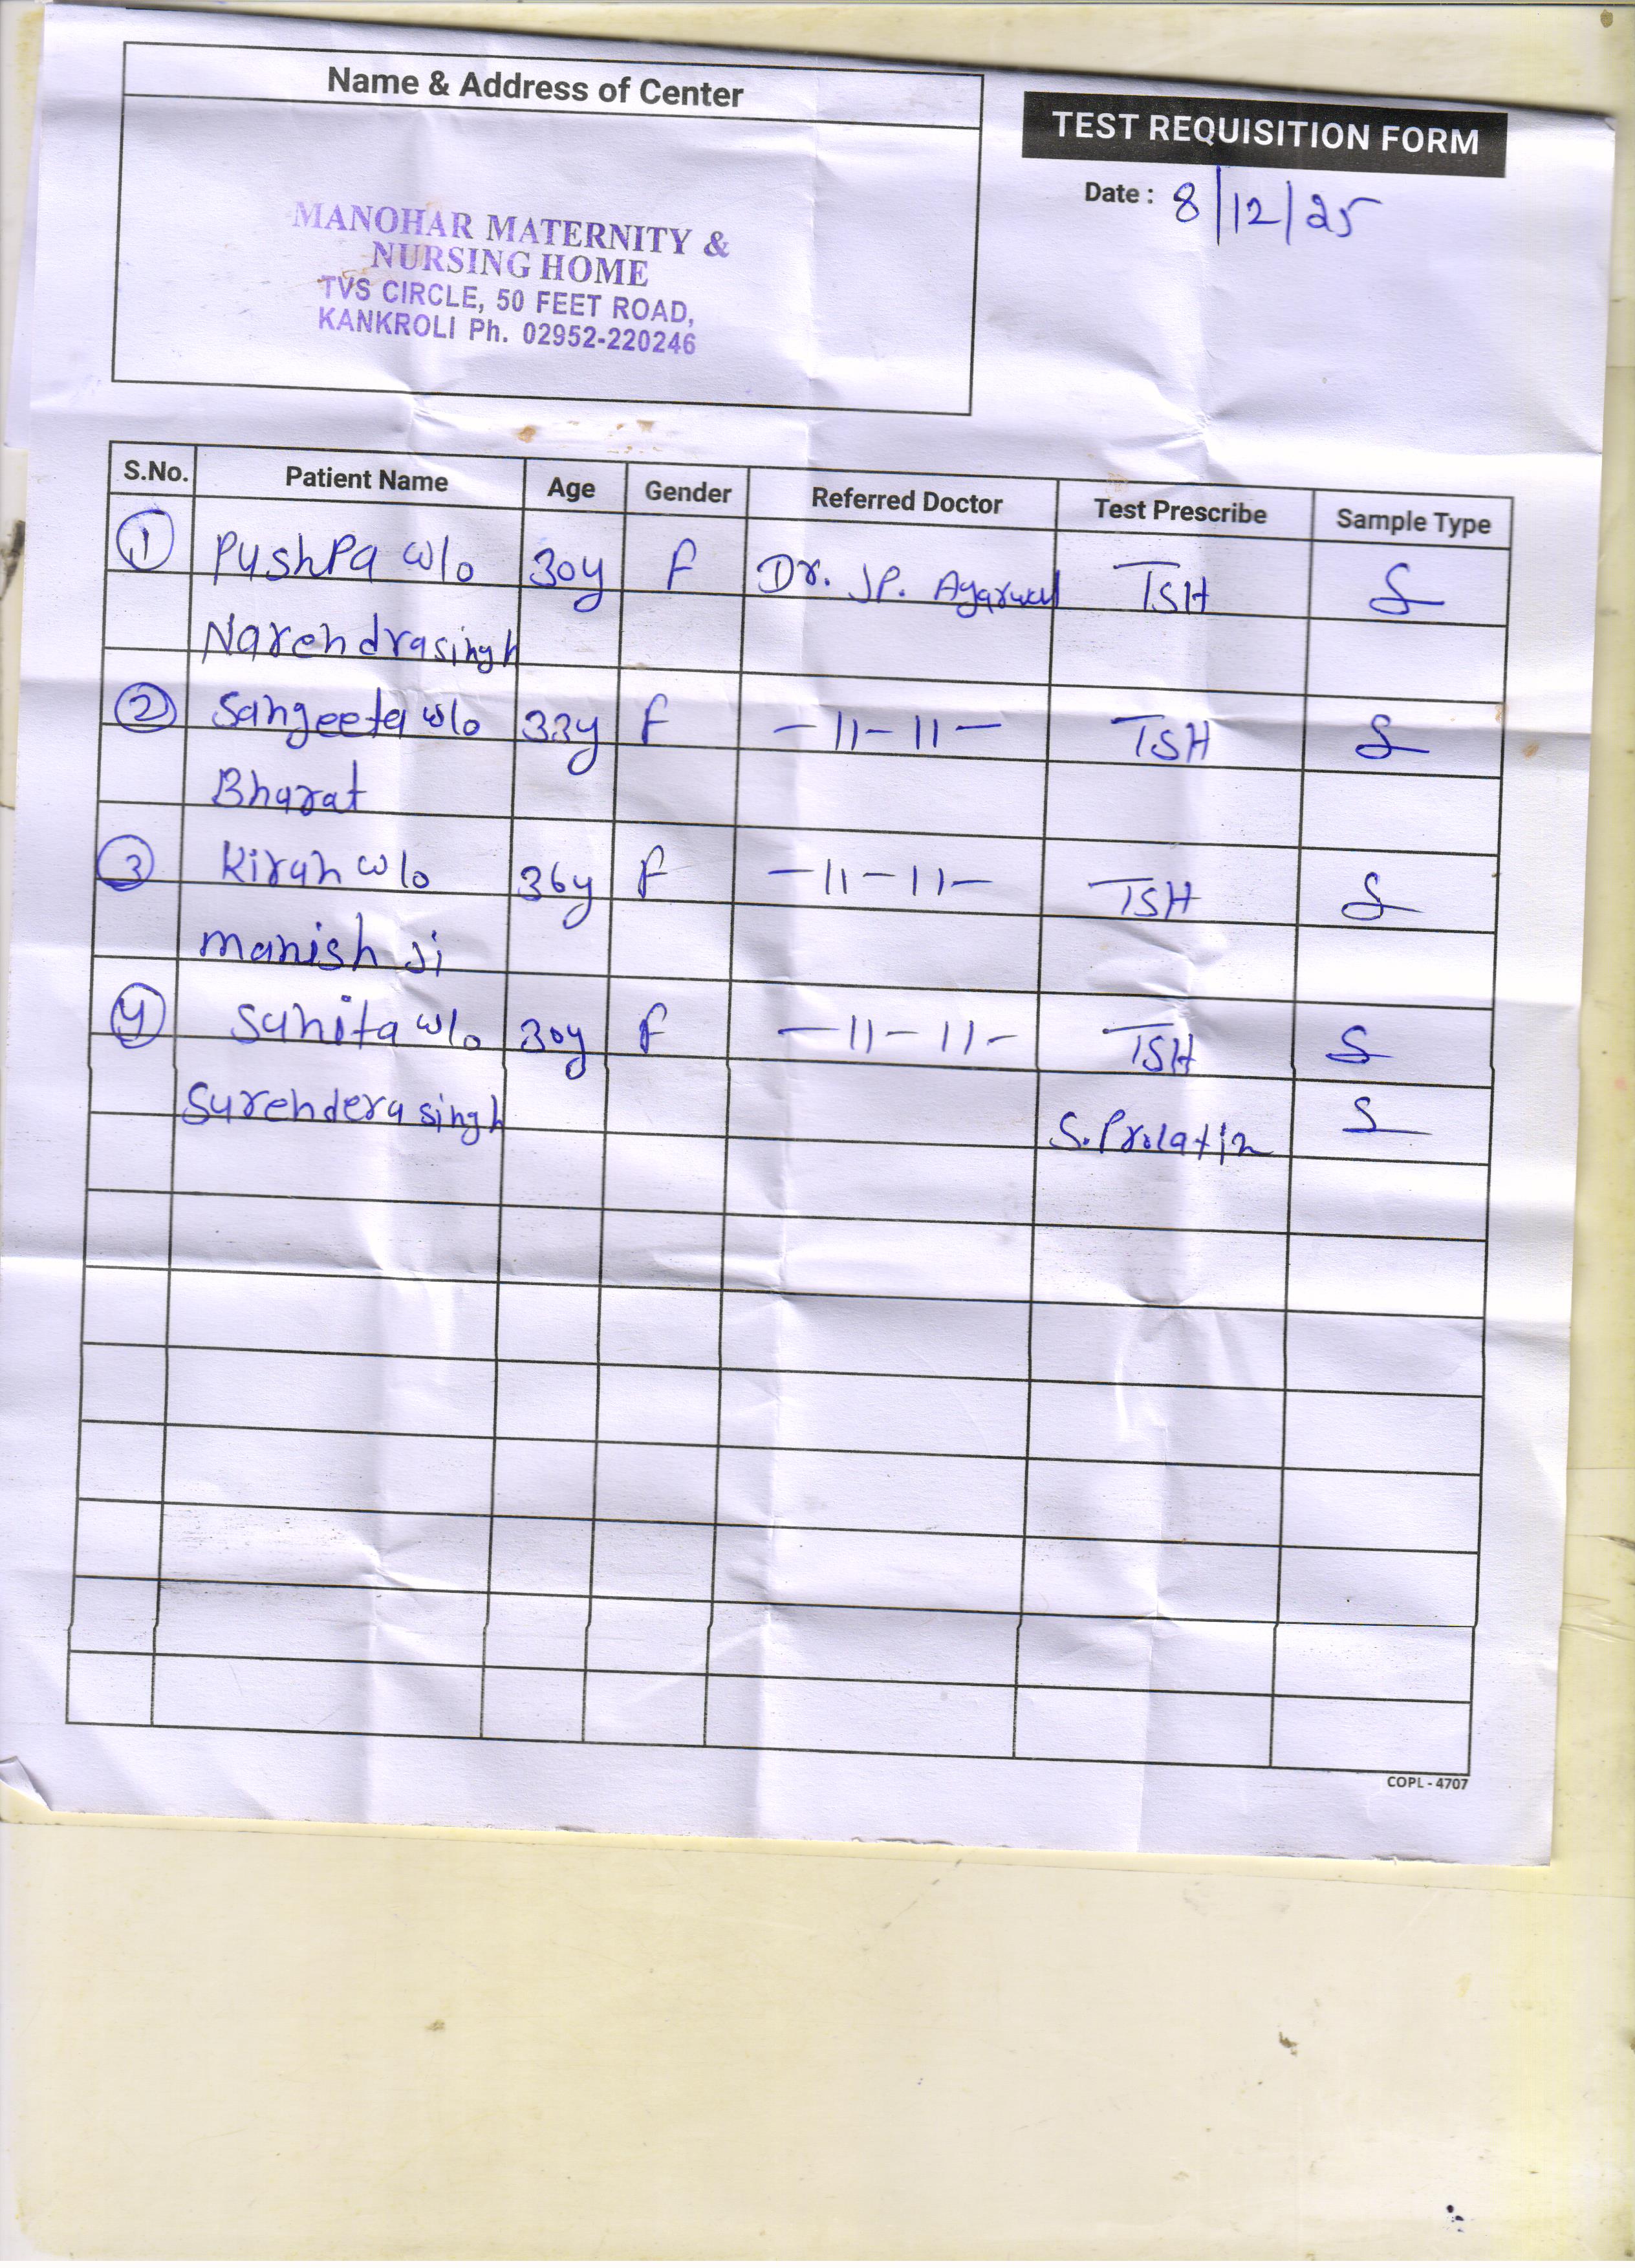 Name & Address of Center
TEST REQUISITION FORM
Date : 8/12/25
MANOHAR MATERNITY &
NURSING HOME
TVS CIRCLE, 50 FEET ROAD,
KANKROLI Ph. 02952-220246
S.No. Patient Name Age Gender Referred Doctor Test Prescribe Sample Type
1 PushPa w/o 30y F Dr. JP. Agarwal TSH S
Narendrasingh
2 Sangeeta w/o 33y F -11-11- TSH S
Bharat
3 Kiran w/o 36y F -11-11- TSH S
manish Ji
4 Sunita w/o 30y F -11-11- TSH S
Surendera singh S.Prolatin S
COPL - 4707